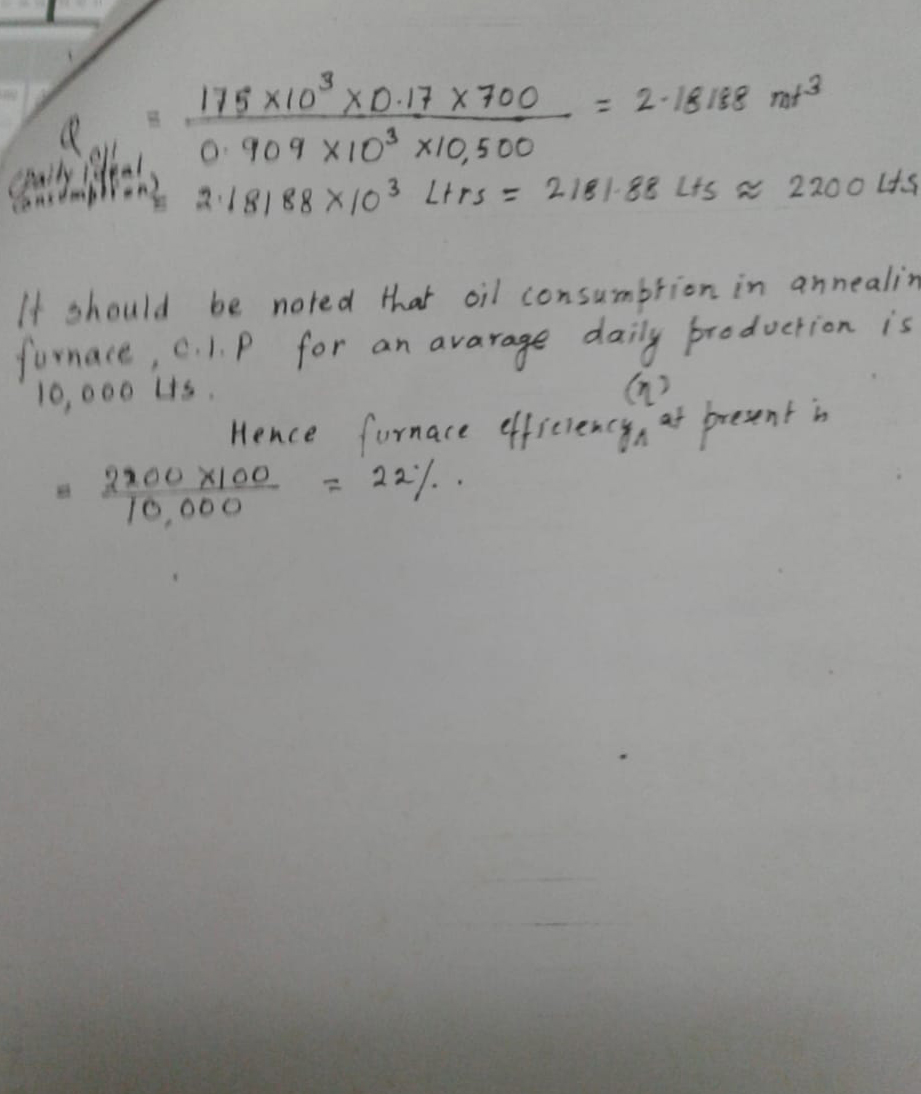 Q oil = 175 ×10³ × 0.17 × 700 / 0.909 ×10³ ×10,500 = 2.18188 mt³
(Daily ideal consumption) = 2.18188 ×10³ Ltrs = 2181.88 Lts ≈ 2200 Lts
It should be noted that oil consumption in annealin
furnace, C.I.P for an avarage daily production is
10,000 Lts.
Hence furnace efficiency (η) at present is
= 2200 ×100 / 10,000 = 22%.